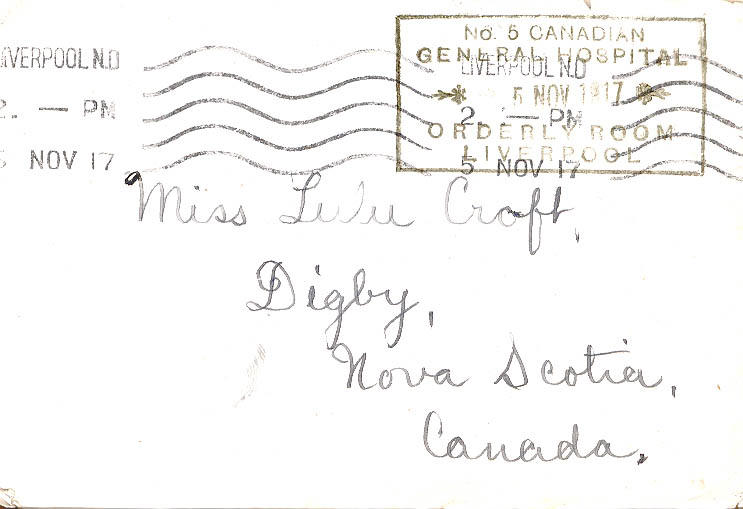 LIVERPOOL N.D
2. — PM
5 NOV 17
No. 5 CANADIAN
GENERAL HOSPITAL
5 NOV 1917
ORDERLY ROOM
LIVERPOOL
LIVERPOOL N.D
2 — PM
5 NOV 17
Miss Lulu Croft,
Digby,
Nova Scotia,
Canada.